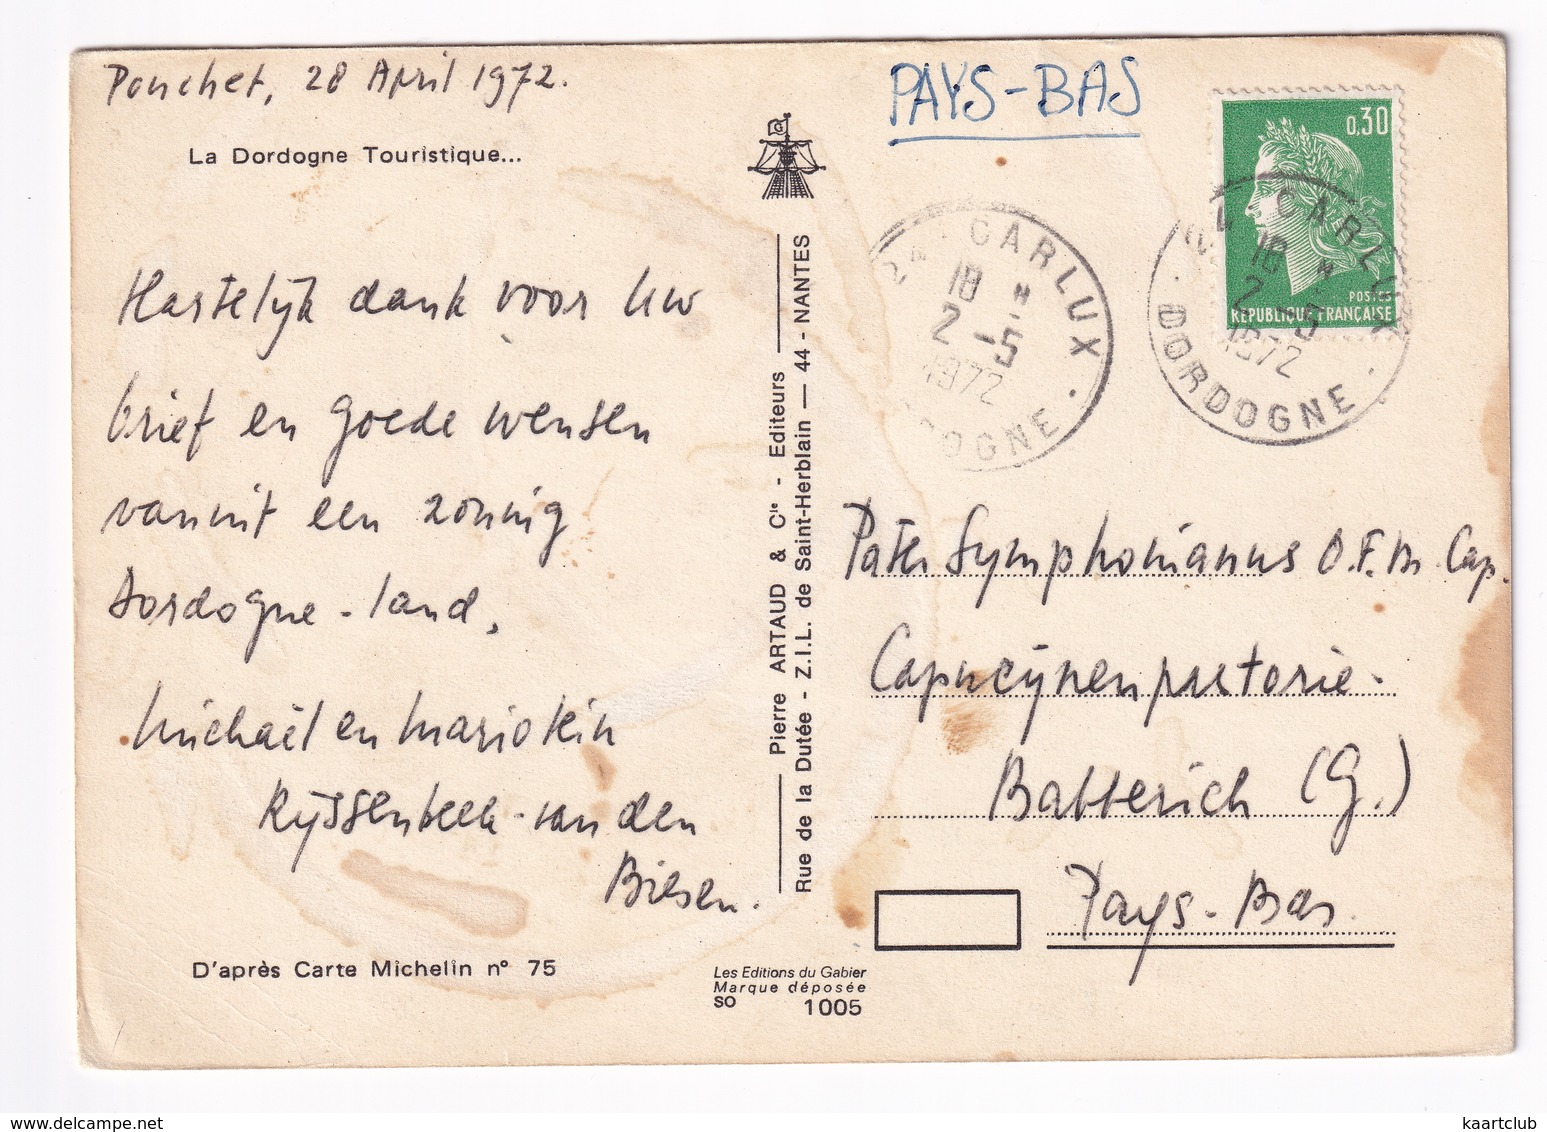 Pouchet, 28 April 1972.
La Dordogne Touristique...
Hartelijk dank voor Uw
brief en goede wensen
vanuit een zonnig
Dordogne-land,
Michaël en Mariotein
Rijssenbeek-van den
Biesen.
D'après Carte Michelin n° 75
Pierre ARTAUD & Cie - Editeurs
Rue de la Dutée - Z.I.L. de Saint-Herblain — 44 - NANTES
Les Editions du Gabier
Marque déposée
SO 1005
PAYS-BAS
0,30
POSTES
RÉPUBLIQUE FRANÇAISE
24 CARLUX
18 H
2 -5
1972
DOGNE
CARLUX
18 H
2 -5
1972
DORDOGNE
Pater Symphonianus O.F.M. Cap.
Capucijnenpastorie
Batterich (G.)
Pays-Bas.
kaartclub